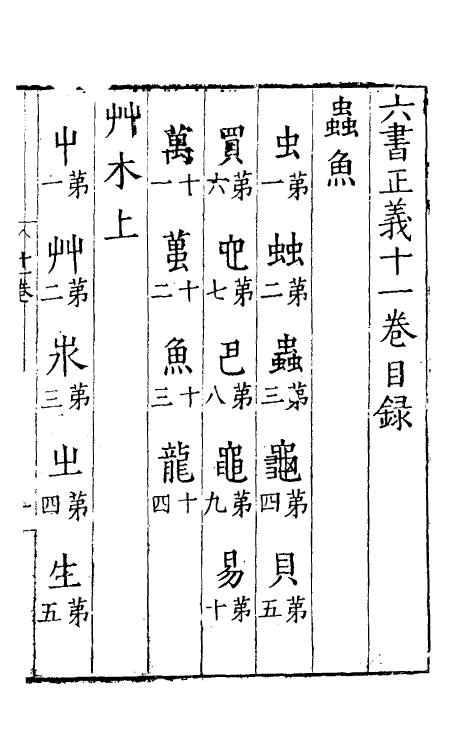 六書正義十一卷目録
蟲魚
虫第一 䖵第二 蟲第三 龜第四 貝第五
買第六 它第七 巴第八 黽第九 易第十
萬十一 䘍十二 魚十三 龍十四
艸木上
屮第一 艸第二 𣎳第三 㞢第四 生第五
十一卷